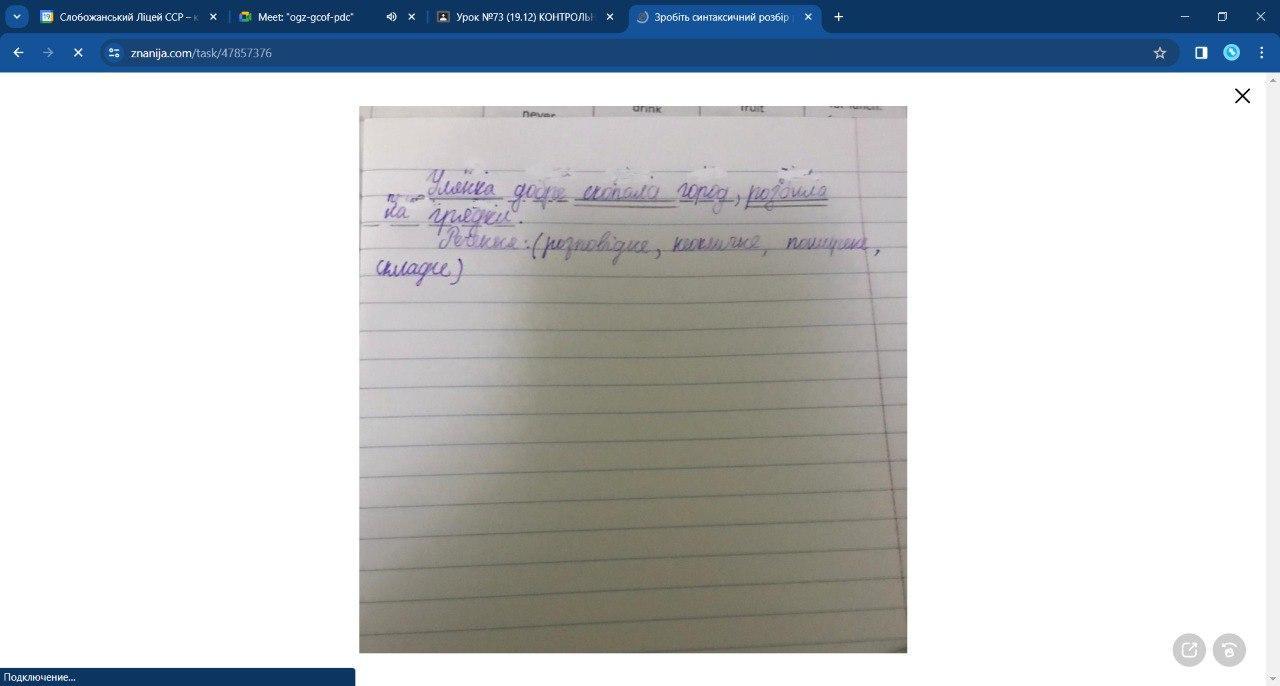 Слобожанський Ліцей ССР – к
Meet: "ogz-gcof-pdc"
Урок №73 (19.12) КОНТРОЛЬН
Зробіть синтаксичний розбір
znanija.com/task/47857376
never
drink
fruit
Улянка добре скопала город, розбила
на грядки.
Речення: (розповідне, неокличне, поширене,
складне)
Подключение...